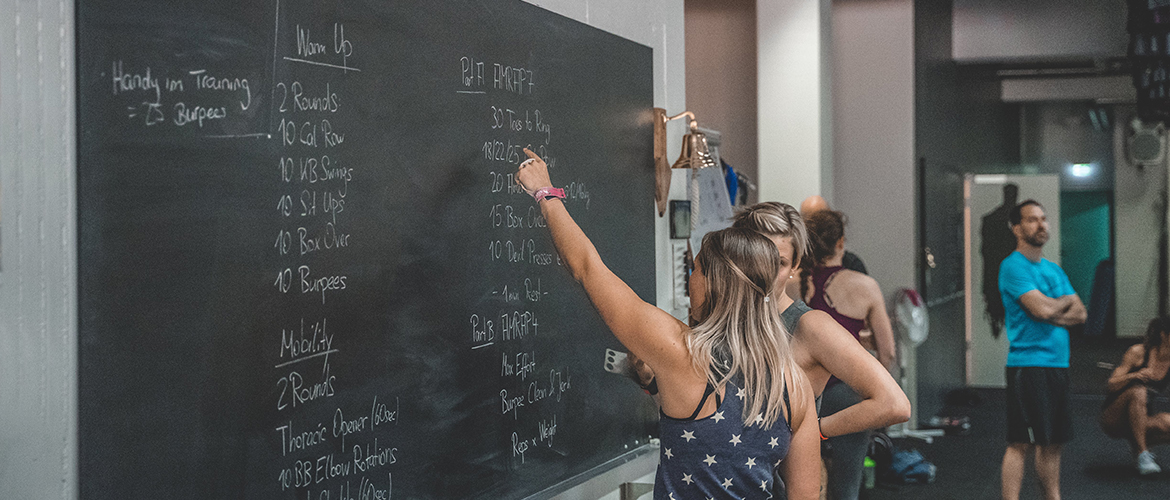 Handy im Training
= 25 Burpees
Warm Up
2 Rounds
10 Cal Row
10 KB Swings
10 Sit Ups
10 Box Over
10 Burpees
Mobility
2 Rounds
Thoracic Opener (60sec)
10 BB Elbow Rotations
Part A AMRAP 7
30 Toes to Ring
18/22/25
20
15 Box Over
10 Devil Presses
- 1 min Rest -
Part B AMRAP 4
Max Effort
Burpee Clean & Jerk
Reps x Weight